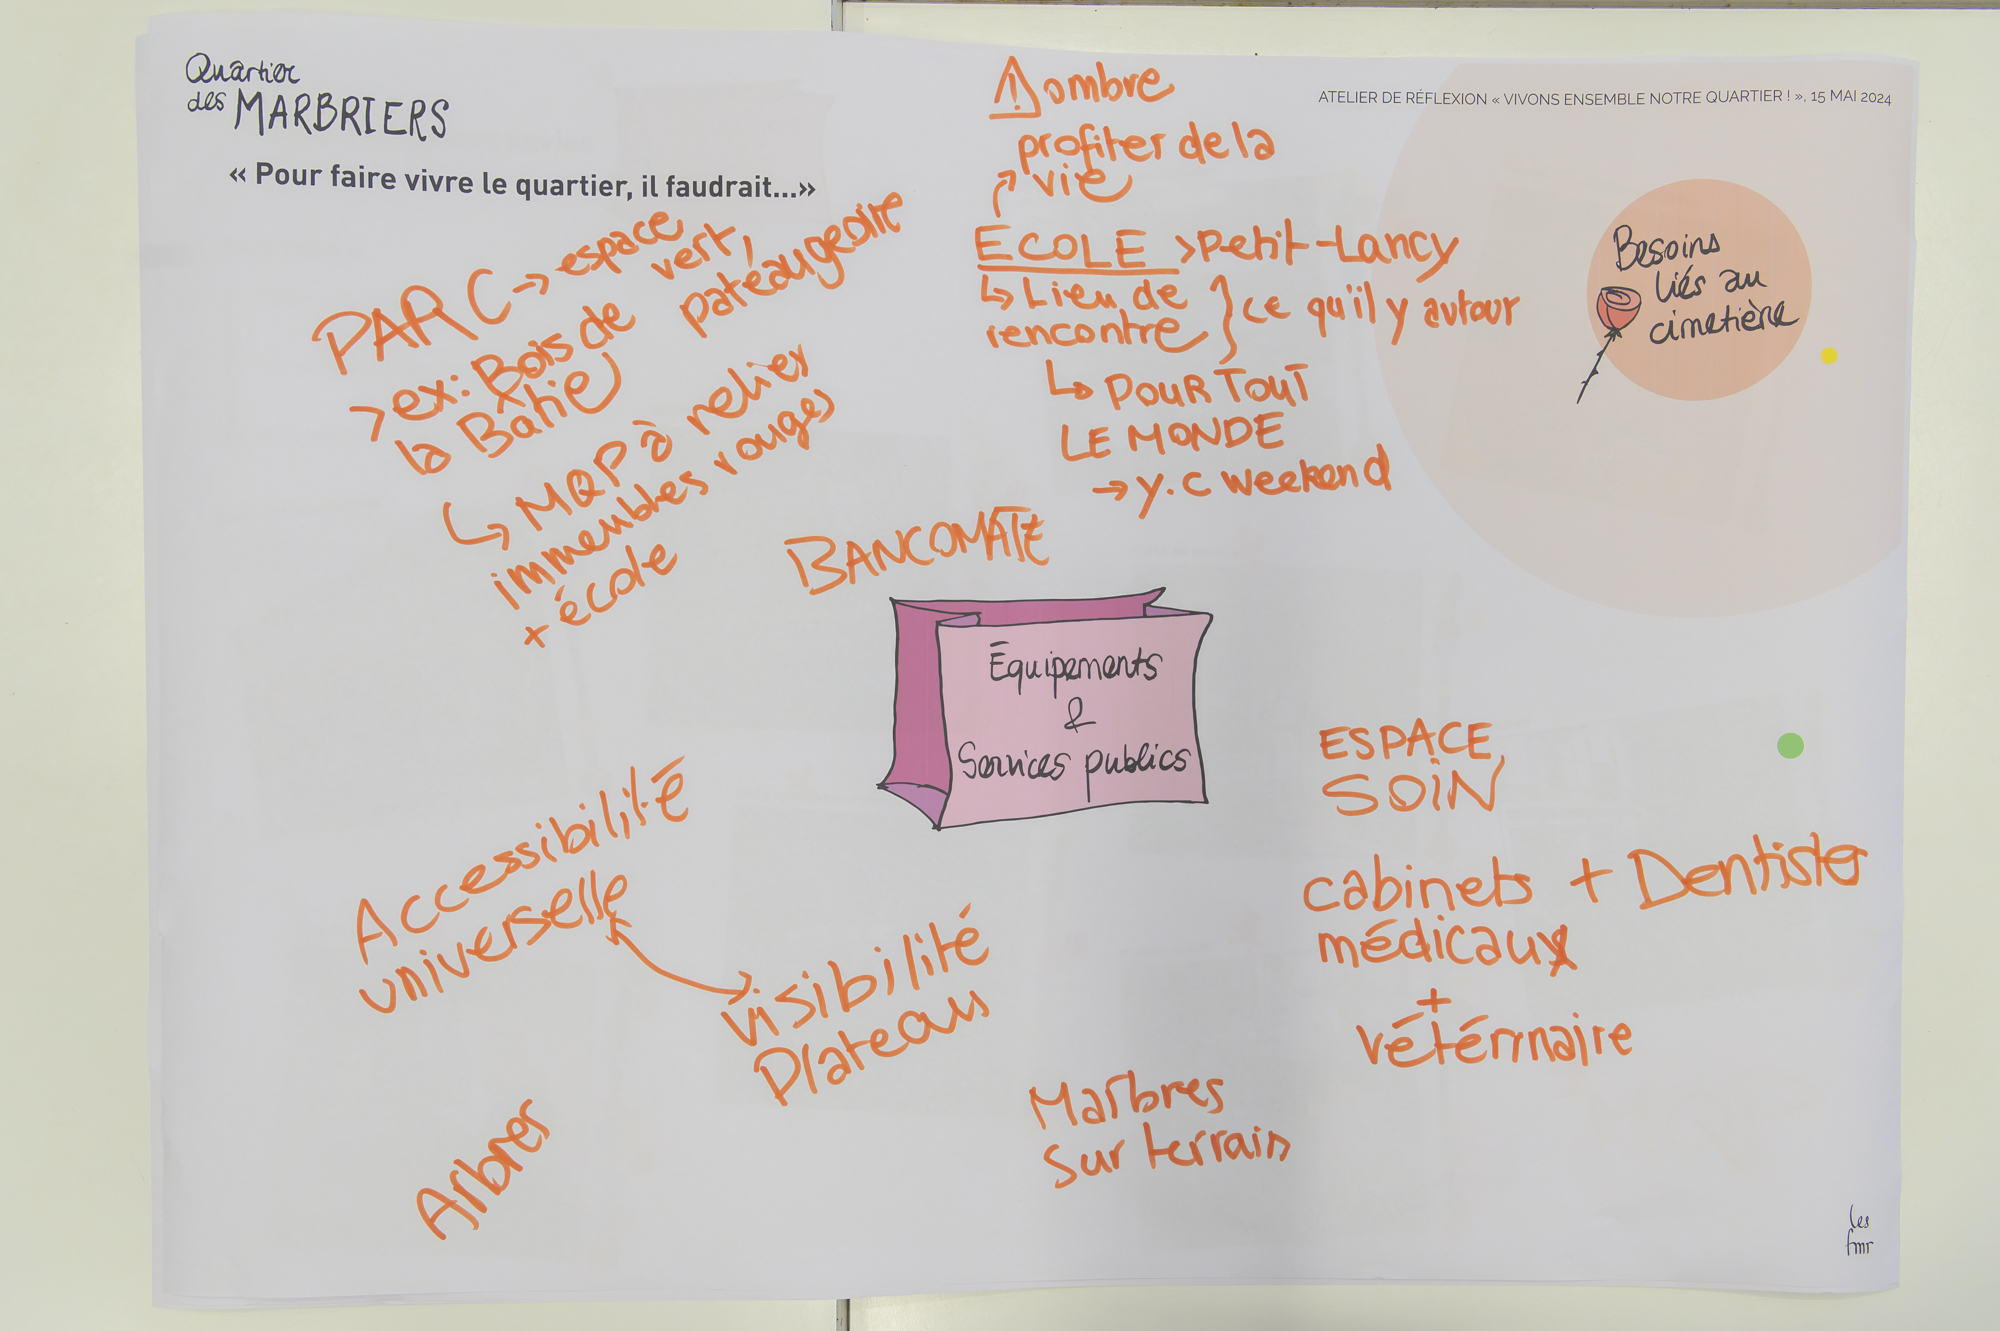 Quartier
des MARBRIERS
« Pour faire vivre le quartier, il faudrait...»
ATELIER DE RÉFLEXION « VIVONS ENSEMBLE NOTRE QUARTIER ! », 15 MAI 2024
Besoins
liés au
cimetière
⚠ ombre
profiter de la
vie
ECOLE > Petit-Lancy
↳ Lieu de
rencontre } ce qu'il y autour
↳ POUR TOUT
LE MONDE
→ y.c weekend
PARC → espace
vert,
pateaugeoire
> ex: Bois de
la Batie
↳ MQP à relier
immeubles rouges
+ école
BANCOMATE
Équipements
&
Services publics
ESPACE
SOIN
cabinets + Dentistes
médicaux
+
vétérinaire
Accessibilité
universelle
visibilité
Plateaus
Marbres
sur terrain
Arbres
les
fmr